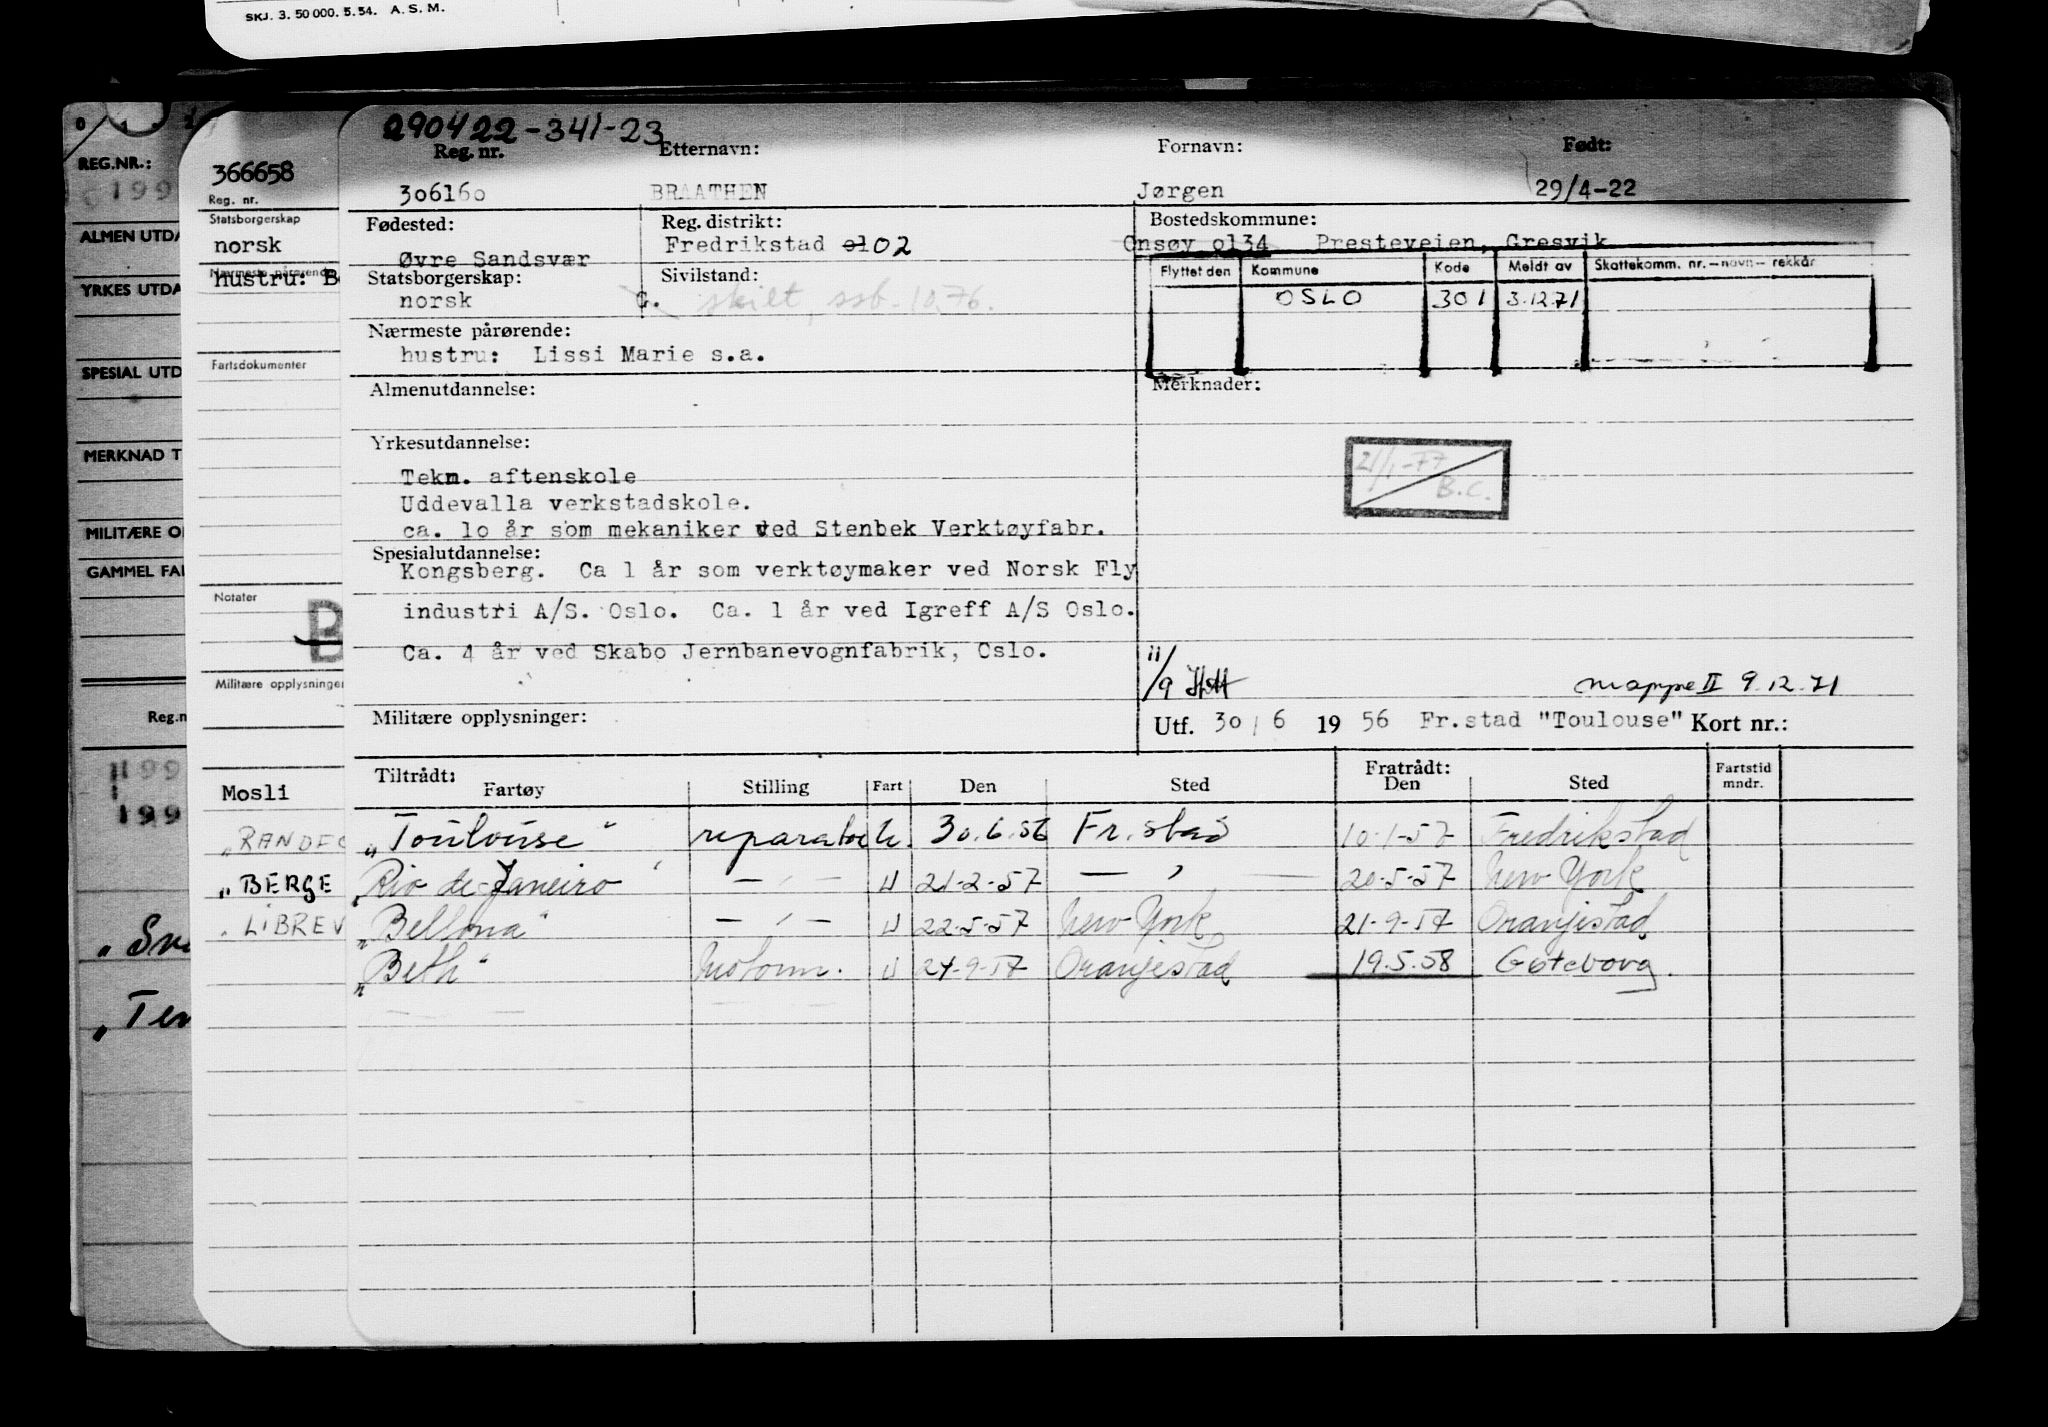 SKJ. 3. 50 000. 5. 54. A. S. M.
REG.NR.:
199
ALMEN UTDA
YRKES UTDA
SPESIAL UTD
MERKNAD T
MILITÆRE O
GAMMEL FA
Reg.n
199
199
366658
Reg. nr.
Statsborgerskap
norsk
Nærmeste pårørende
hustru: B
Fartsdokumenter
Notater
B
Militære opplysninger
Mosli
"RANDE
"BERGE
"LIBREV
"Sv
"Ter
290422-341-23
Reg. nr. Etternavn: Fornavn: Født:
306160 BRAATHEN Jørgen 29/4-22
Fødested: Reg. distrikt: Bostedskommune:
Øvre Sandsvær Fredrikstad 0102 Onsøy 0134 Presteveien, Gresvik
Statsborgerskap: Sivilstand: Flyttet den Kommune Kode Meldt av Skattekomm. nr. – navn – rekkår
norsk G. skilt, ssb. 10.76. OSLO 301 3.12.71
Nærmeste pårørende:
hustru: Lissi Marie s.a.
Almenutdannelse: Merknader:
Yrkesutdannelse:
21/1-77
B.C.
Tekn. aftenskole
Uddevalla verkstadskole.
ca. 10 år som mekaniker ved Stenbek Verktøyfabr.
Spesialutdannelse:
Kongsberg. Ca 1 år som verktøymaker ved Norsk Fly
industri A/S. Oslo. Ca. 1 år ved Igreff A/S Oslo.
Ca. 4 år ved Skabo Jernbanevognfabrik, Oslo.
11/9 mappe II 9.12.71
Militære opplysninger: Utf. 30/6 1956 Fr.stad "Toulouse" Kort nr.:
Tiltrådt: Fratrådt: Fartstid
Fartøy Stilling Fart Den Sted Den Sted mndr.
"Toulouse" reparatør U. 30.6.56 Fr.stad 10-1-57 Fredrikstad
"Rio de Janeiro" — " — U 21-2-57 — " — 20-5-57 New York
"Bellona" — " — U 22-5-57 New York 21-9-57 Oranjestad
"Beth" Motorm. U 24-9-57 Oranjestad 19.5.58 Gøteborg.